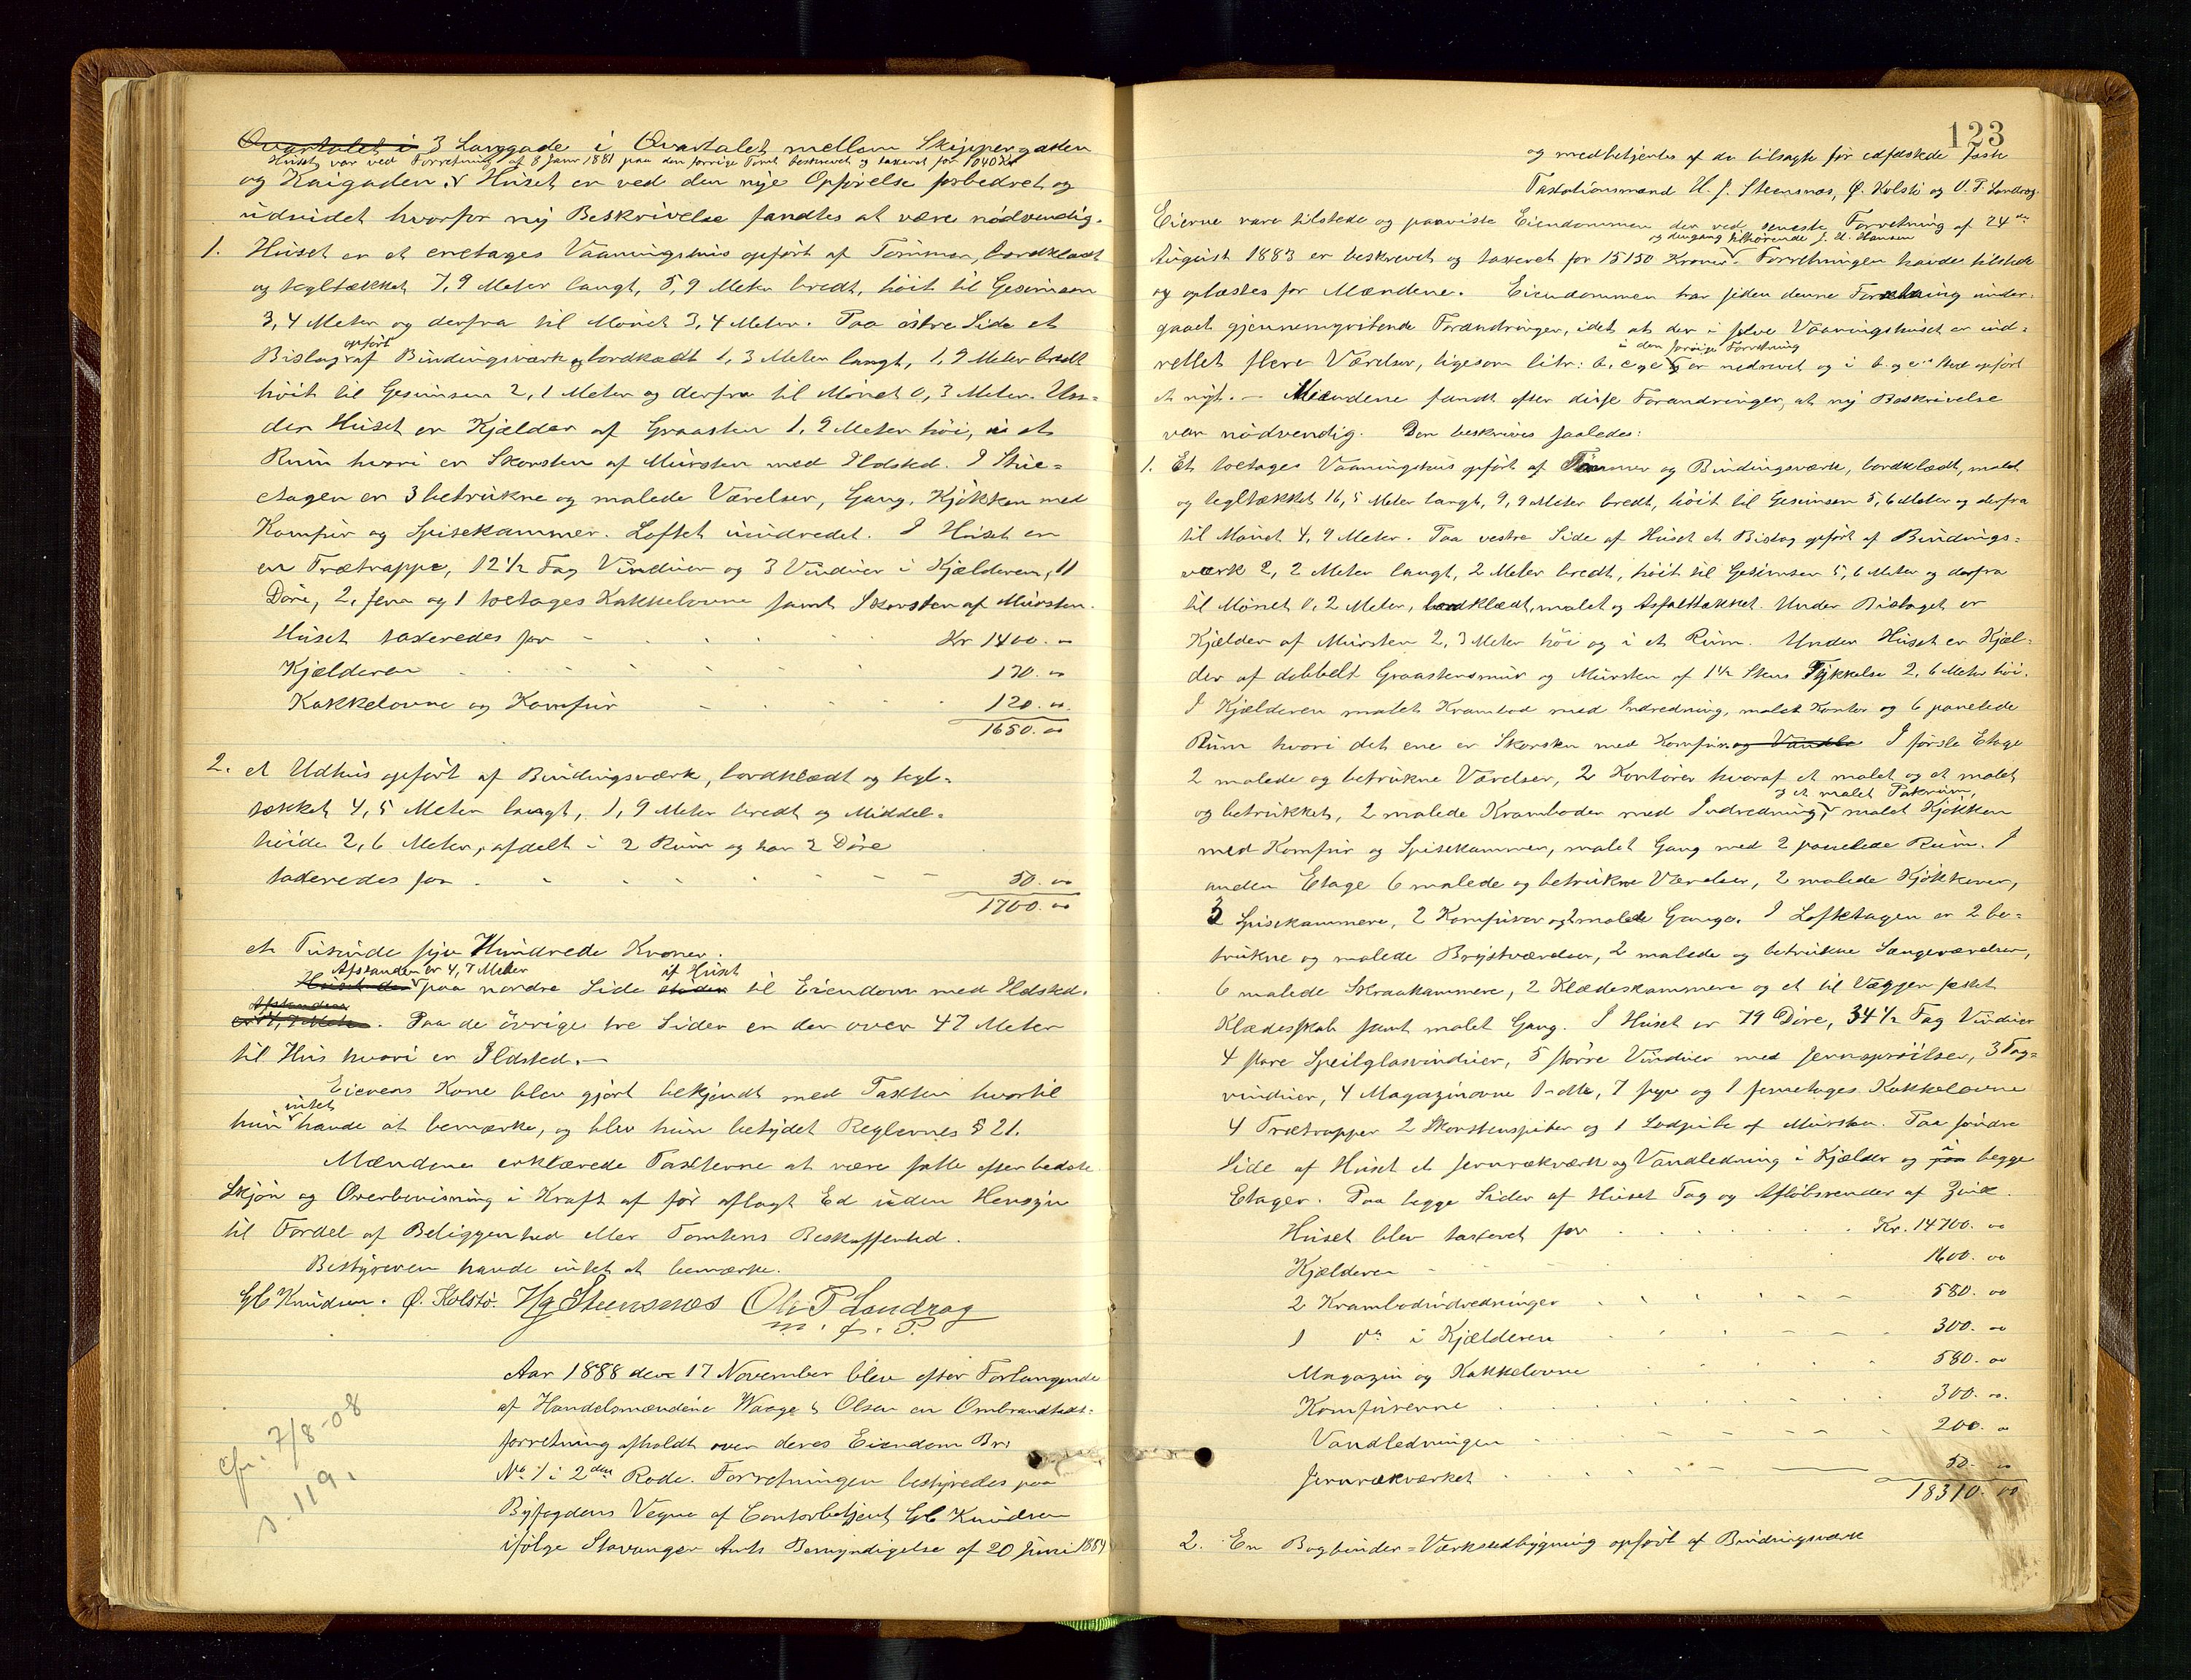 Qvartalet i 3 Langgade i Qvartalet mellem Skippergaden
Huset var ved Forretning af 8 Janr 1881 paa den forrige Tomt beskrevet og taxeret for 1040 Kr
og Kaigaden. Huset er ved den nye Opførelse forbedret og
udvidet hvorfor ny Beskrivelse fandtes at være nødvendig.
1. Huset er et enetages Vaaningshus opført af Tømmer, bordklædt
og tegltækket 7,9 Meter langt, 5,9 Meter bredt, høit til Gesimsen
3,4 Meter og derfra til Mønet 3,4 Meter. Paa østre Side et
opført
Bislag af Bindingsværk og bordklædt 1,3 Meter langt, 1,9 Meter bredt
høit til Gesimsen 2,1 Meter og derfra til Mønet 0,3 Meter. Un-
der Huset er Kjælder af Graasten 1,9 Meter høi, i et
Rum hvori er Skorsten af Mursten med Ildsted. I Stue-
etagen er 3 betrukne og malede Værelser, Gang, Kjøkken med
Komfur og Spisekammer. Loftet uindredet. I Huset er
en Trætrappe, 12½ Fag Vinduer og 3 Vinduer i Kjælderen, 11
Døre, 2 Jern og 1 toetages Kakkelovne samt Skorsten af Mursten.
Huset taxeredes for Kr 1400. 00
Kjælderen 130. 00
Kakkelovne og Komfur 120. 00.
1650. 00
2. et Udhus opført af Bindingsværk, bordklædt og tegl-
tækket 4,5 Meter langt, 1,9 Meter bredt og Middel-
høide 2,6 Meter, afdelt i 2 Rum og har 2 Døre
taxeredes for 50. 00
1700. 00
et Tusinde syv Hundrede Kroner.
Afstanden er 4,7 Meter af Huset
paa nordre Side til Eiendom med Ildsted.
Afstanden
er 4,7 Meter. Paa de øvrige tre Sider er der over 47 Meter
til Hus hvori er Ildsted.—
Eierens Kone blev gjort bekjendt med Taxten hvortil
intet
hun havde at bemærke, og blev hun betydet Reglernes § 21.
Mændene erklærede Taxterne at være satte efter bedste
Skjøn og Overbevisning i Kraft af før aflagt Ed uden Hensyn
til Fordel af Beliggenhed eller Tomtens Beskaffenhed.
Bestyreren havde intet at bemærke.
Gb Knudsen. Ø. Kolstø. Hg Steensnæs Ole P Landrog
m. f. P.
Aar 1888 den 17 November blev efter Forlangende
af Handelsmændene Waage & Olsen en Ombrandtaxt-
forretning afholdt over deres Eiendom Br:
No 1 i 2den Rode. Forretningen bestyredes paa
Byfogdens Vegne af Contorbetjent Gb Knudsen
ifølge Stavanger Amts Bemyndigelse af 20 Juni 1884
cfr. 7/8-08
s. 119.
123
og medbetjentes af de tilsagte før edfæstede faste
Taxationsmænd H. J. Steensnæs, Ø. Kolstø og O. P. Landrog.
Eierne vare tilstede og paaviste Eiendommen der ved seneste Forretning af 24de
og dengang tilhørende J. H. Hansen
August 1883 er beskrevet og taxeret for 15150 Kroner. Forretningen havdes tilstede
og oplæstes for Mændene. Eiendommen har siden denne Forretning under-
gaaet gjennemgribende Forandringer, idet at der i selve Vaaningshuset er ind-
i den forrige Forretning
rettet flere Værelser, ligesom litr: b, c og e er nedrevet og i b og c's Sted opført
et nyt.— Mændene fandt efter disse Forandringer, at ny Beskrivelse
var nødvendig. Den beskrives saaledes:
1. Et toetages Vaaningshus opført af Tømmer og Bindingsværk, bordklædt, malet
og tegltækket 16,5 Meter langt, 9,9 Meter bredt, høit til Gesimsen 5,6 Meter og derfra
til Mønet 4,9 Meter. Paa vestre Side af Huset et Bislag opført af Bindings-
værk 2,2 Meter langt, 2 Meter bredt, høit til Gesimsen 5,6 Meter og derfra
til Mønet 0,2 Meter, bordklædt, malet og Asfalttækket. Under Bislaget er
Kjælder af Mursten 2,3 Meter høi og i et Rum. Under Huset er Kjæl-
der af dobbelt Graastensmur og Mursten af 1½ Stens Tykkelse 2,6 Meter høi.
I Kjælderen malet Krambod med Indredning, malet Kontor og 6 panelede
Rum hvori det ene er Skorsten med Komfur og Vandle I første Etage
2 malede og betrukne Værelser, 2 Kontorer hvoraf et malet og et malet
og et malet Pakrum,
og betrukket, 2 malede Kramboder med Indredning, malet Kjøkken
med Komfur og Spisekammer, malet Gang med 2 panelede Rum. I
anden Etage 6 malede og betrukne Værelser, 2 malede Kjøkkener,
3 Spisekammere, 2 Komfurer og 2 malede Gange. I Loftetagen er 2 be-
trukne og malede Brystværelser, 2 malede og betrukne Sængeværelser,
6 malede Skraakammere, 2 Klædeskammere og et til Væggen fæstet
Klædesskab samt malet Gang. I Huset er 79 Døre, 34½ Fag Vinduer
4 store Speilglasvinduer, 5 større Vinduer med Jernsprøitser, 3 Tag-
vinduer, 4 Magazinovne 1-dte, 7 sye og 1 femetages Kakkelovne
4 Trætrapper 2 Skorstenspiber og 1 Lodpibe af Mursten. Paa søndre
i
Side af Huset et Jernrækværk og Vandledning i Kjælder og paa begge
Etager. Paa begge Sider af Huset Tag og Afløbsrender af Zink.
Huset blev taxeret for Kr. 14700. 00
Kjælderen 1600. 00
2 Krambodindredninger 580. 00
1 do i Kjælderen 300. 00
Magazin og Kakkelovne 580. 00
Komfurerne 300. 00.
Vandledningen 200. 00
Jernrækværket 50. 00
18310. 00
2. En Bogbinder-Værkstedbygning opført af Bindingsværk